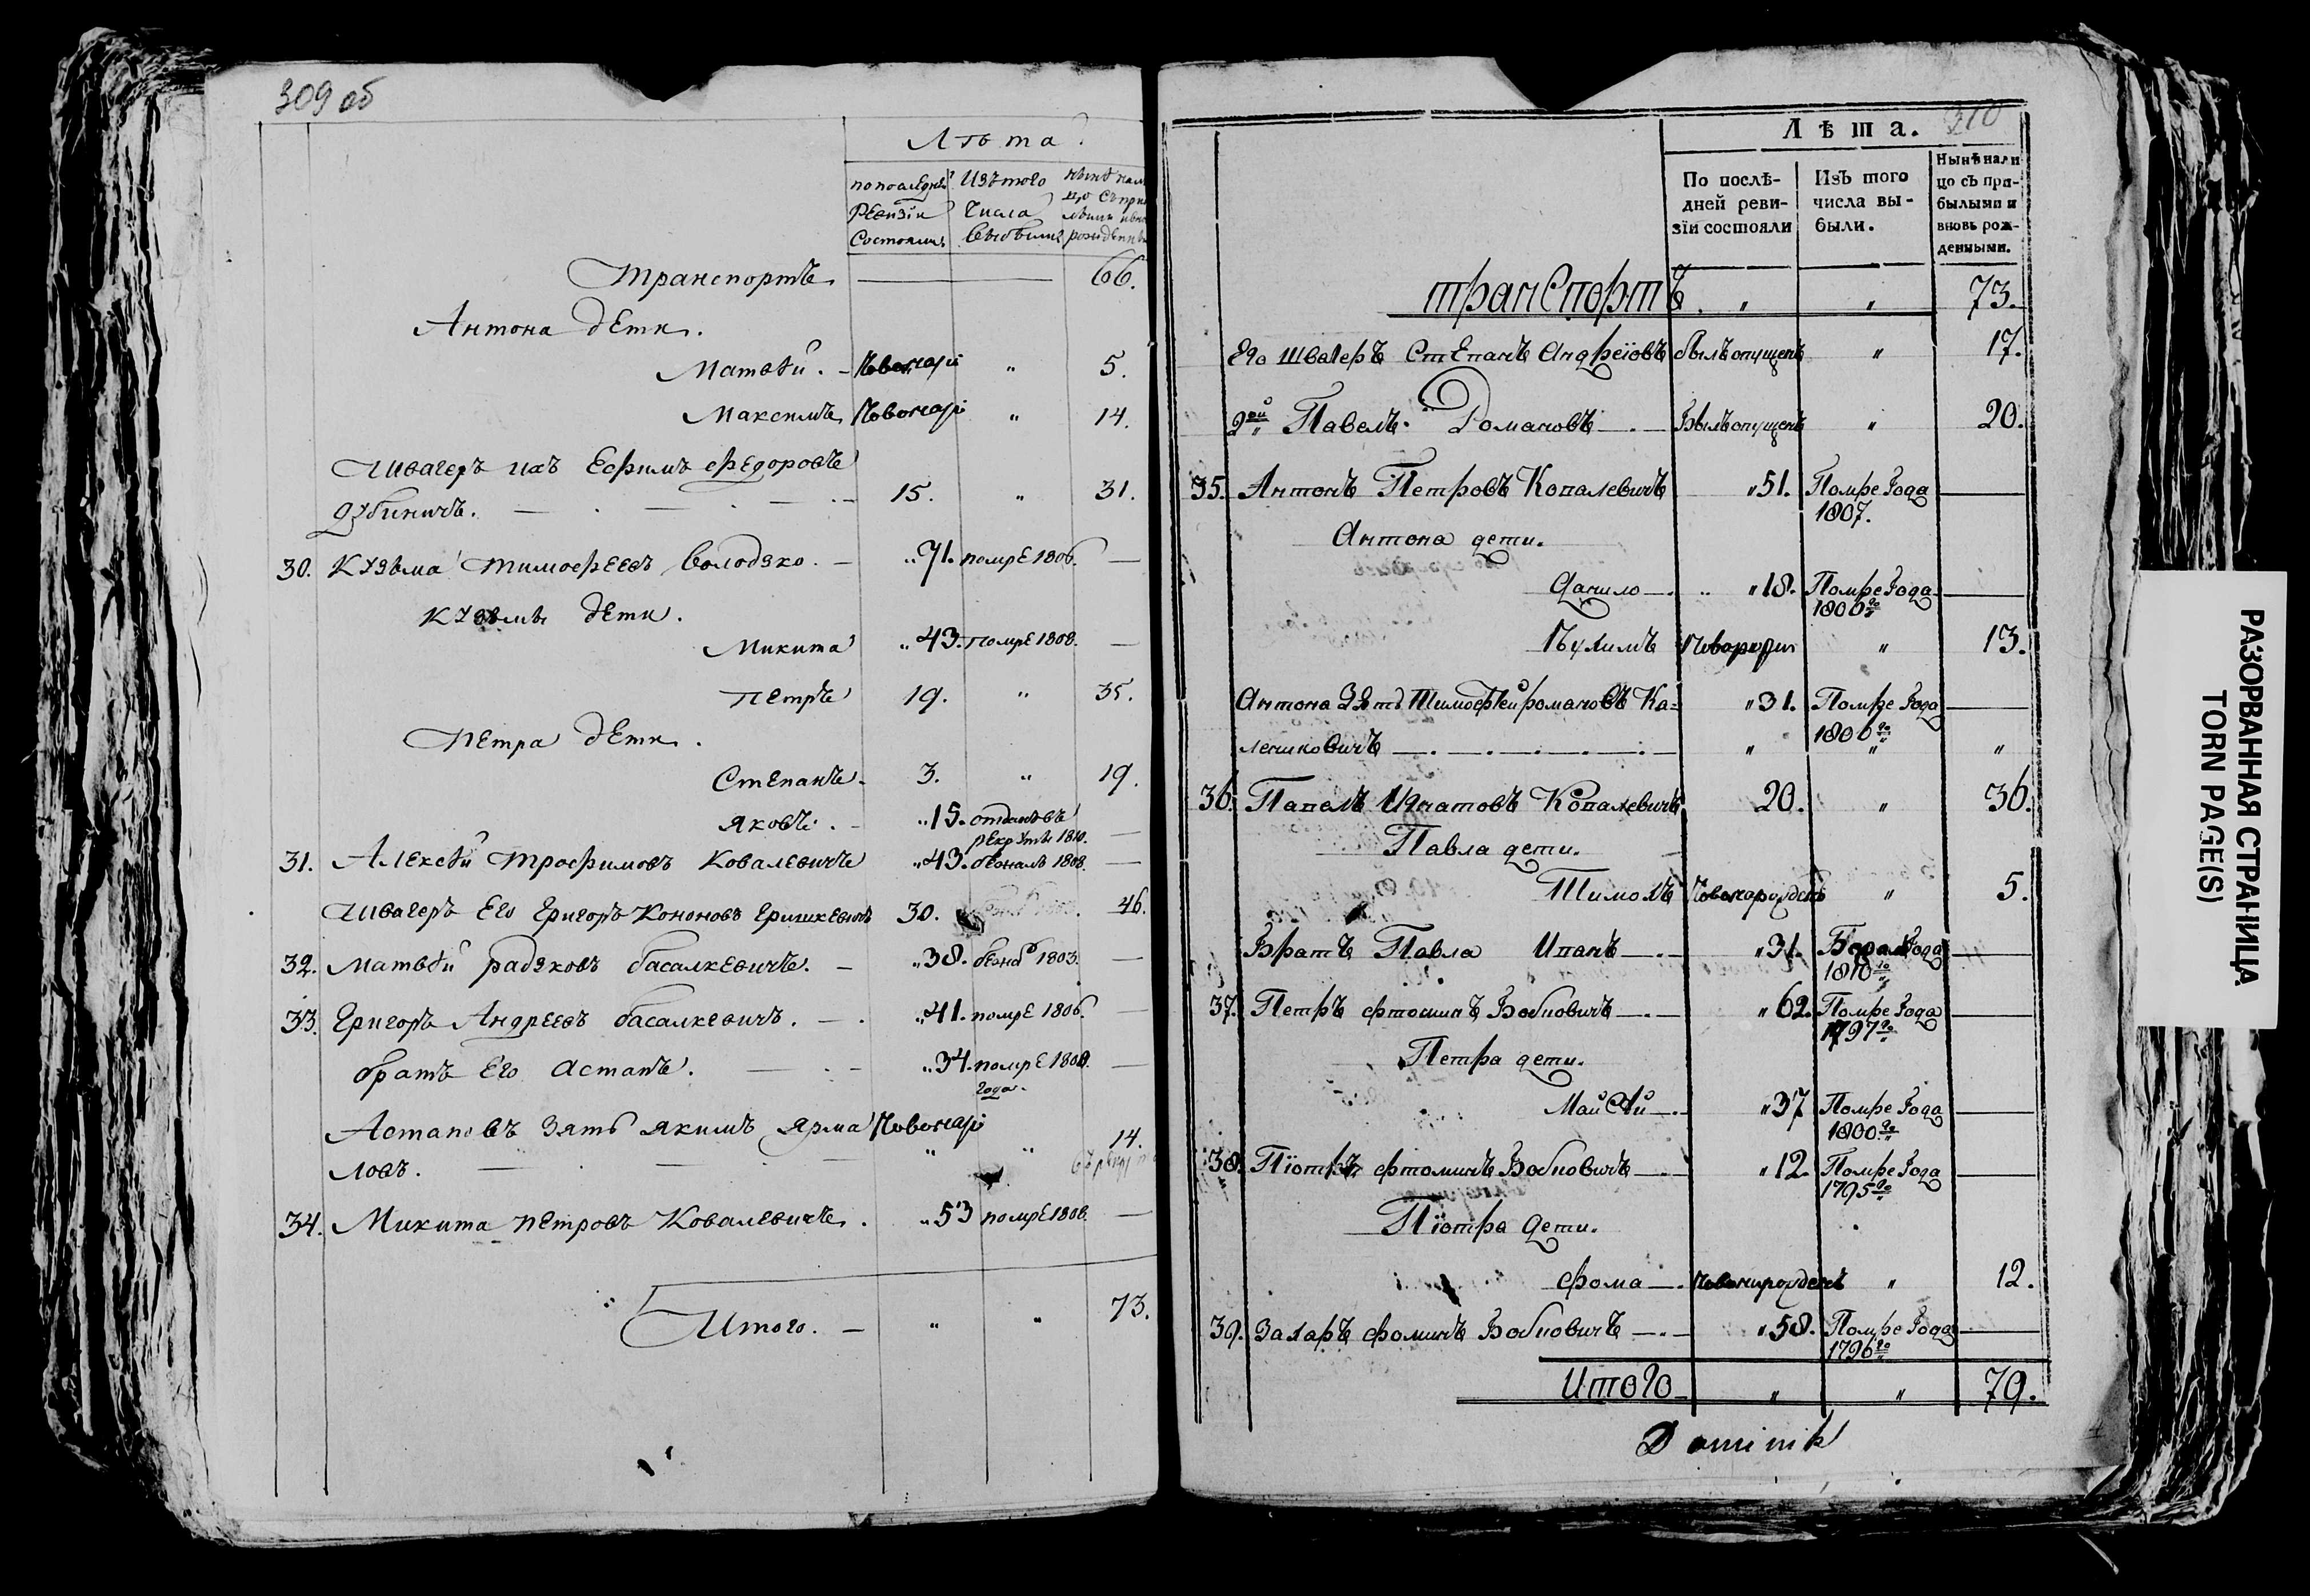 309 об
Лѣта.
по последней Изъ того нынѣ нали
Ревизіи числа цо съ при
Состояли выбыли
Транспортъ 66.
Антона дети.
Матвѣй. Новонарі " 5.
Максимъ Новонарі " 14.
Швагеръ ихъ Ефимъ Федоровъ
Дубиничъ. 15. " 31.
30. Кузьма Тимофеевъ Володзко. „71. помре 1806. —
Кузьмы дети.
Микита „43. помре 1808. —
Петръ 19. " 35.
Петра дети.
Степанъ 3. " 19.
Яковъ. „15. отданъ въ
рекруты 1810. —
31. Алексѣй Трофимовъ Ковалевичъ „43. бежалъ 1808. —
Швагеръ Его Григоръ Кононовъ Гришкевичъ 30. 46.
32. Матвѣй Радзковъ Басалкевичъ. „38. бежа 1803. —
33. Григоръ Андреевъ Басалкевичъ. „41. помре 1806. —
братъ Его Астапъ. „34. помре 1808. —
года.
Астаповъ Зять Якимъ Ярма Новонарі
ловъ. " " 14.
34. Микита Петровъ Ковалевичъ. „53 помре 1808. —
Итого. " " 73.
210
Лѣта.
По послѣ- Изъ того Нынѣ нали
дней реви- числа вы- цо съ при-
зіи состояли были. былыми и
вновь рож-
денными.
транспортъ. " " 73.
Его швагеръ Степанъ Андреіовъ былъ опущенъ " 17.
2ой Павелъ Романовъ Былъ опущенъ " 20.
35. Антонъ Петровъ Копалевичъ "51. Помре Года
1807.
Антона дети.
Данило "18. Помре Года
1806го
" 13.
Антона Зять Тимофѣй романовъ Ка= "31. Помре Года
леникович " 1806го "
36. Папелъ Игнатовъ Копалевичъ 20. " 36.
Павла дети.
Новонарожденъ " 5.
Братъ Павла Ипанъ "31. Бежалъ Года
1810го
37. Петръ фтоминъ Бобповичъ "62. Помре Года
1797го
Петра дети.
Майсѣй "37 Помре Года
1800го
38. Піотръ фтоминъ Бобповичъ "12. Помре Года
1795го
Піотра дети.
Фома Новонарожденъ " 12.
39. Захаръ фоминъ Бобповичъ "58. Помре Года
1796го
Итого " " 79.
Dominik
РАЗОРВАННАЯ СТРАНИЦА
TORN PAGE(S)